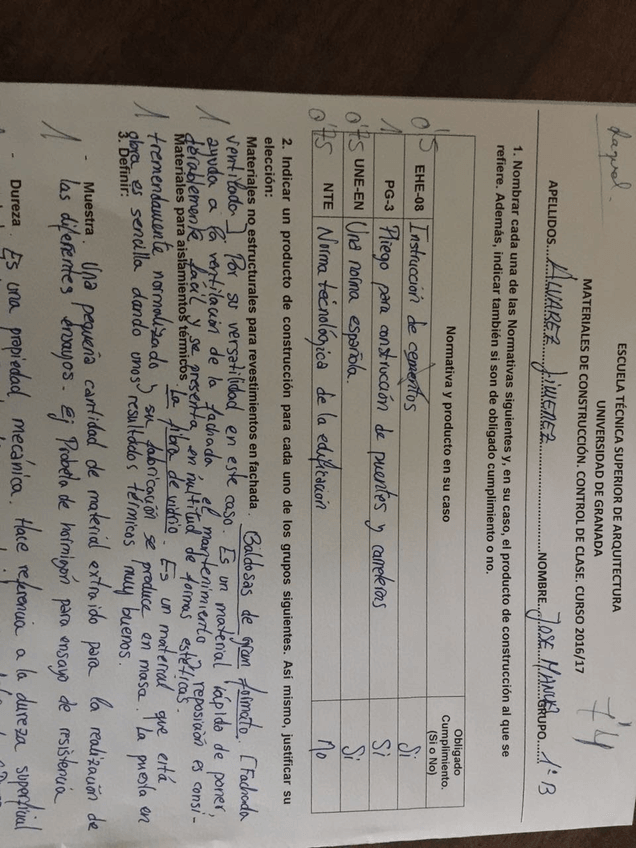 Raquel.
ESCUELA TÉCNICA SUPERIOR DE ARQUITECTURA
UNIVERSIDAD DE GRANADA
MATERIALES DE CONSTRUCCIÓN. CONTROL DE CLASE. CURSO 2016/17
7'4
APELLIDOS...ÁLVAREZ JIMÉNEZ...NOMBRE...JOSE MANUEL GRUPO...1º B
1. Nombrar cada una de las Normativas siguientes y, en su caso, el producto de construcción al que se
refiere. Además, indicar también si son de obligado cumplimiento o no.
Normativa y producto en su caso
Obligado
Cumplimiento.
(Si o No)
0'5 EHE-08 Instrucción de cementos Si
1 PG-3 Pliego para construcción de puentes y carreteras Si
0'75 UNE-EN Una norma española. Si
0'75 NTE Norma tecnológica de la edificación No
2. Indicar un producto de construcción para cada uno de los grupos siguientes. Así mismo, justificar su
elección:
Materiales no estructurales para revestimientos en fachada. Baldosas de gran formato. [Fachada
ventilada]. Por su versatilidad en este caso. Es un material rápido de poner,
1 ayuda a la ventilación de la fachada, el mantenimiento y reposición es consi-
derablemente fácil y se presenta en multitud de formas estéticas.
Materiales para aislamientos térmicos. La fibra de vidrio. Es un material que está
1 tremendamente normalizado y su fabricación se produce en masa. La puesta en
obra es sencilla dando unos resultados térmicos muy buenos.
3. Definir:
- Muestra Una pequeña cantidad de material extraído para la realización de
1 las diferentes ensayos. Ej Probeta de hormigón para ensayo de resistencia
- Dureza Es una propiedad mecánica. Hace referencia a la dureza superficial